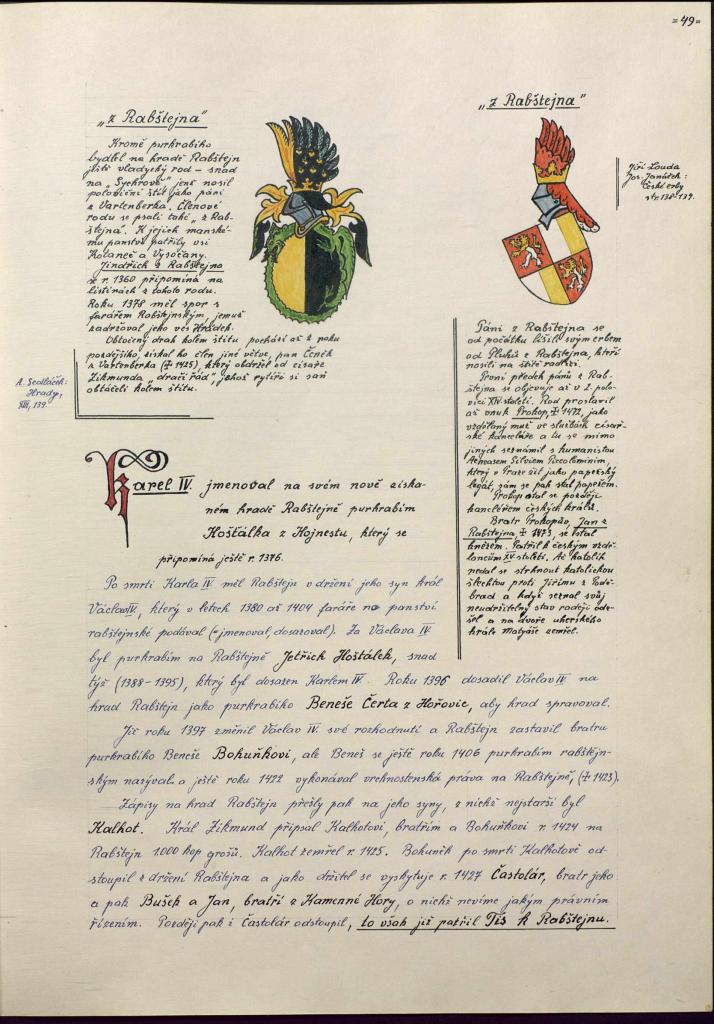 =49=
„z Rabštejna"
Kromě purkrabího
bydlel na hradě Rabštejn
ještě vladycký rod – snad
na „Sychrově", jenž nosil
poloviční štít jako páni
z Vartenberka. Členové
rodu se psali také „z Rab-
štejna". K jejich manské-
mu panství patřily vsi
Kotaneč a Vysočany.
Jindřich z Rabštejna
se r. 1360 připomíná na
listinách z tohoto rodu.
Roku 1378 měl spor s
farářem Rabštejnským, jemuž
zadržoval jeho ves Hrádek.
Obtočený drak kolem štítu pochází až z roku
pozdějšího, získal ho člen jiné větve, pan Čeněk
z Vartenberka (‡ 1425), který obdržel od císaře
Zikmunda „dračí řád", jehož rytíři si saň
obtáčeli kolem štítu.
A. Sedláček:
Hrady,
XIII, 139.
„z Rabštejna"
Jiří Louda
Jos. Janáček:
České erby
str. 138-139.
Páni z Rabštejna se
od počátku lišili svým erbem
od Pluhů z Rabštejna, kteří
nosili na štítě radlici.
První předek pánů z Rab-
štejna se objevuje až v 2. polo-
vici XIV. století. Rod proslavil
až vnuk Prokop, ‡ 1472, jako
vzdělaný muž ve službách císař-
ské kanceláře a tu se mimo
jiných seznámil s humanistou
Aeneasem Silviem Piccolominim,
který v Praze žil jako papežský
legát, sám se pak stal papežem.
Prokop stal se později
kancléřem českých králů.
Bratr Prokopův, Jan z
Rabštejna, ‡ 1473, se stal
knězem. Patřil k českým vzdě-
lancům XV. století. Ač katolík
nedal se strhnout katolickou
šlechtou proti Jiřímu z Podě-
brad a když seznal svůj
neudržitelný stav raději ode-
šel a na dvoře uherského
krále Matyáše zemřel.
Karel IV. jmenoval na svém nově získa-
ném hradě Rabštejně purkrabím
Hošťálka z Hojnestu, který se
připomíná ještě r. 1376.
Po smrti Karla IV. měl Rabštejn v držení jeho syn král
Václav IV., který v letech 1380 až 1404 faráře na panství
rabštejnské podával (=jmenoval, dosazoval). Za Václava IV.
byl purkrabím na Rabštejně Jetřich Hošťálek, snad
týž (1388 – 1395), který byl dosazen Karlem IV. Roku 1396 dosadil Václav IV. na
hrad Rabštejn jako purkrabího Beneše Čerta z Hořovic, aby hrad spravoval.
Již roku 1397 změnil Václav IV. své rozhodnutí a Rabštejn zastavil bratru
purkrabího Beneše Bohuňkovi, ale Beneš se ještě roku 1406 purkrabím rabštejn-
ským nazýval a ještě roku 1422 vykonával vrchnostenská práva na Rabštejně, (‡ 1423).
Zápisy na hrad Rabštejn přešly pak na jeho syny, z nichž nejstarší byl
Kalhot. Král Zikmund připsal Kalhotovi, bratřím a Bohuňkovi r. 1424 na
Rabštejn 1.000 kop grošů. Kalhot zemřel r. 1425. Bohuněk po smrti Kalhotově od-
stoupil z držení Rabštejna a jako držitel se vyskytuje r. 1427 Častolár, bratr jeho
a pak Bušek a Jan, bratři z Kamenné Hory, o nichž nevíme jakým právním
řízením. Později pak i Častolár odstoupil, to však již patřil Tis k Rabštejnu.